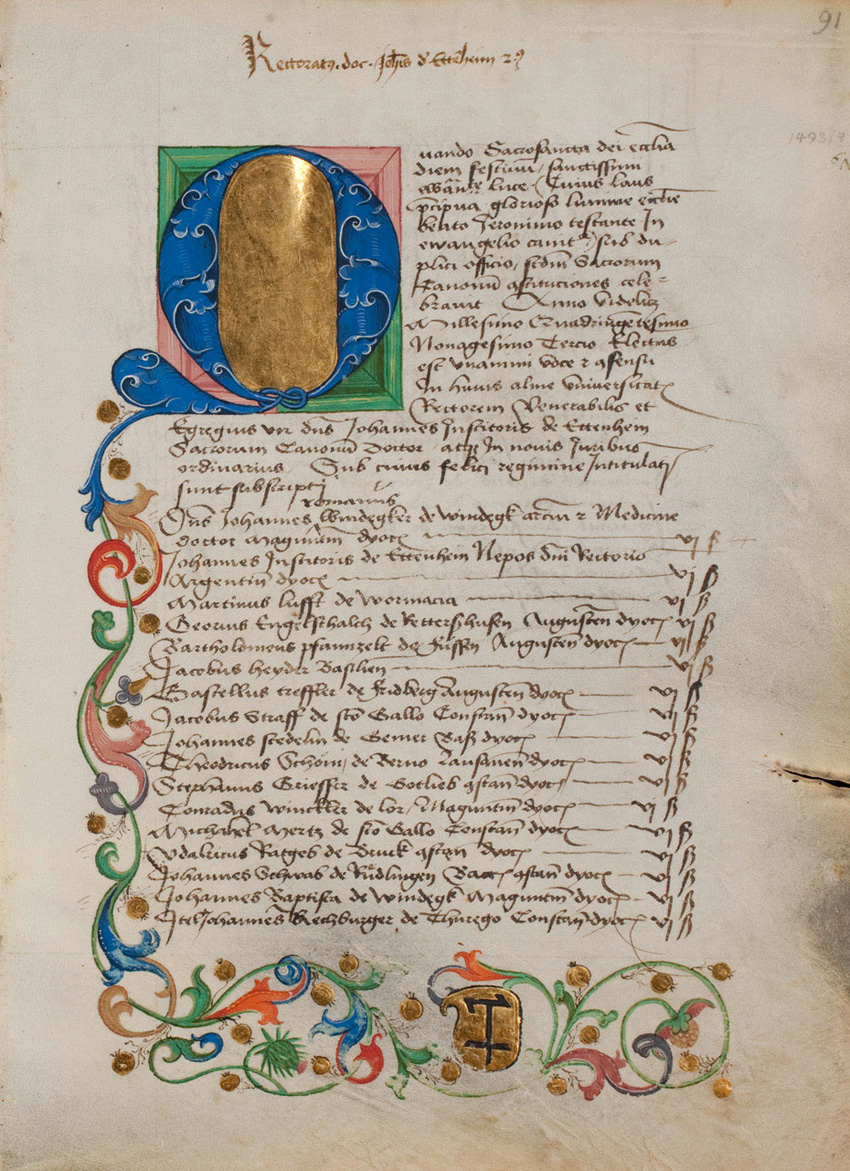 Rectoratus doc. Joh̄is d' Ettēheim 2
91
1493/94
Quando Sacrosancta dei eccl̄ia
diem festiuū sanctissim
luce Cuius laus
p̄cipua gloriose lumine eccl̄ie
beato Jeronimo testante In
ewangelio canit sub du-
plici officio, sedm̄ Sacrorum
Canonū cele-
brauit Anno videlicz
Millesimo Quadringētesimo
Nonagesimo Tercio Electus
est vnanimi voce
In huius alme vniuersitat
Rectorem Venerabilis et
Egregius vir dn̄s Johannes Institoris de Ettenhem
Sacrorum Canonū Doctor atqꝫ In nouis Juribus
ordinarius, Sub cuius felici regimine Intitulati
sunt subscripti
romanus
Dn̄s Johannes Windegker de Windegk arciū 2 Medicine
doctor Magūtin dyoc vi ß
Johannes Institoris de Ettenhem Nepos dn̄i Rectoris
Argentin̄ dyoc vi ß
Martinus lufft de wormacia vi ß
Georius Engelschalch de Rettershusen Augusten̄ dyoc vi ß
Bartholomeus pfanzelt de füssen Augusten̄ dyoc vi ß
Jacobus heyder Basilien̄ vi ß
Gastellus treffler de fridberg Augusten̄ dyoc vi ß
Jacobus Straff de sc̄to Gallo Constan̄ dyoc vi ß
Johannes stedelin de Gemer Basz̄ dyoc vi ß
Theodricus Schöni de Berno Lausanen̄ dyoc vi ß
Stephanus Grieffer de Gotlieb 9stan̄ dyoc vi ß
Conradus winckler de lor, Maguntin̄ dyoc vi ß
Michahel Mertz de sc̄to Gallo Constan̄ dyoc vi ß
Vdalricus Ratges de Bruck 9stan̄ dyoc vi ß
Johannes Schwab de Rüdlingen Bacc 9stan̄ dyoc vi ß
Johannes Baptista de Windegk Maguntin̄ dyoc vi ß
JtelJohannes Rechburger de Thurego Constan̄ dyoc vi ß